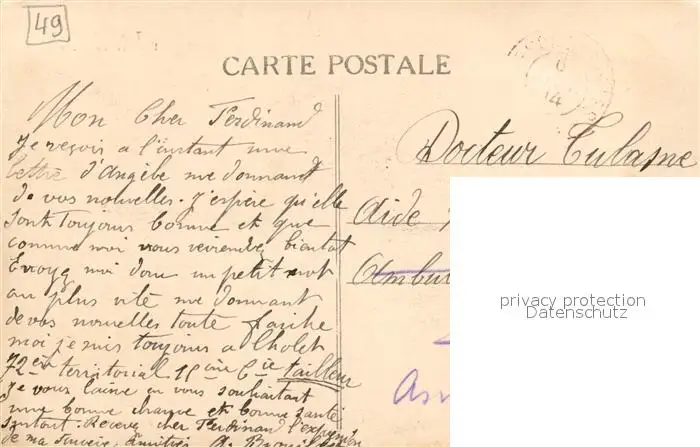 49
CARTE POSTALE
Mon Cher Ferdinand
Je reçois a l'instant une
lettre d'Angèle me donnant
de vos nouvelles. J'espère qu'elle
sont toujours bonne et que
comme moi vous reviendez bientot
Envoyez moi donc un petit mot
au plus vite me donnant
de vos nouvelles toute fraiche
moi je suis toujours a Cholet
72 territorial 15ème Cie tailleur
Je vous laisse en vous souhaitant
une bonne chance et bonne santé
surtout. Recevez cher Ferdinand l'expression
de ma
Docteur
Aide
privacy protection
Datenschutz